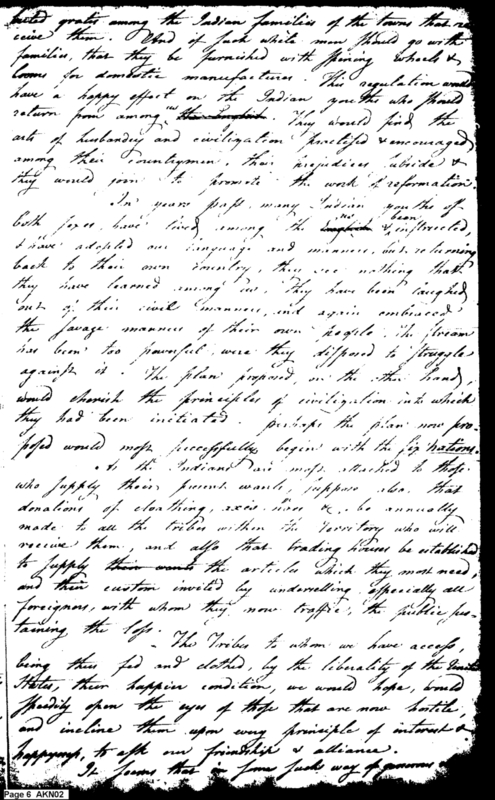 buted gratis among the Indian families of the towns that re
ceive them. And if such white men should go with
families, that they be furnished with spining wheels &
looms for domestic manufactures. This regulation would
have a happy effect on the Indian youths who should
return from among us the English. They would find, the
arts of husbandry and civilization practised & encouraged
among their countrymen, their prejudices subside &
they would join to promote the work of reformation.
In years past, many Indian youths of
both sexes, have lived among the English us & been instructed,
& have adopted our language and manners, but, returning
back to their own country, they see nothing that
they have learned among us. They have been laughed
out of their civil manners, and again embraced
the savage manners of their own people. The stream
has been too powerful were they disposed to struggle
against it. The plan proposed, on the other hand,
would cherish the principles of civilization into which
they had been initiated. perhaps the plan now pro-
posed would most successfully begin with the six nations.
As the Indians are most attached to those
who supply their present wants, suppose also that
donations of cloathing, axes, hoes &c. be annually
made to all the tribes within the Territory who will
receive them, and also that trading houses be established
to supply their wants the articles which they most need,
and their custom invited by underselling especially all
foreigners, with whom they now traffic, the public sus-
taining the loss.
The Tribes to whom we have access,
being thus fed and clothed, by the liberality of the United
States, their happier condition, we would hope, would
speedily open the eyes of those that are now hostile,
and incline them upon every principle of interest &
happyness, to ask our friendship & alliance.
It seems that in some such way of generous
Page 6 AKN02